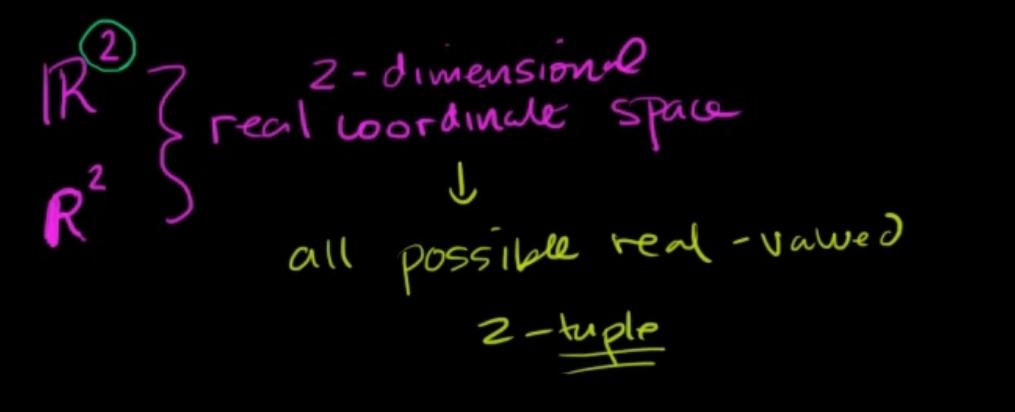 ℝ²
2-dimensional
real coordinate space
R²
↓
all possible real-valued
2-tuple